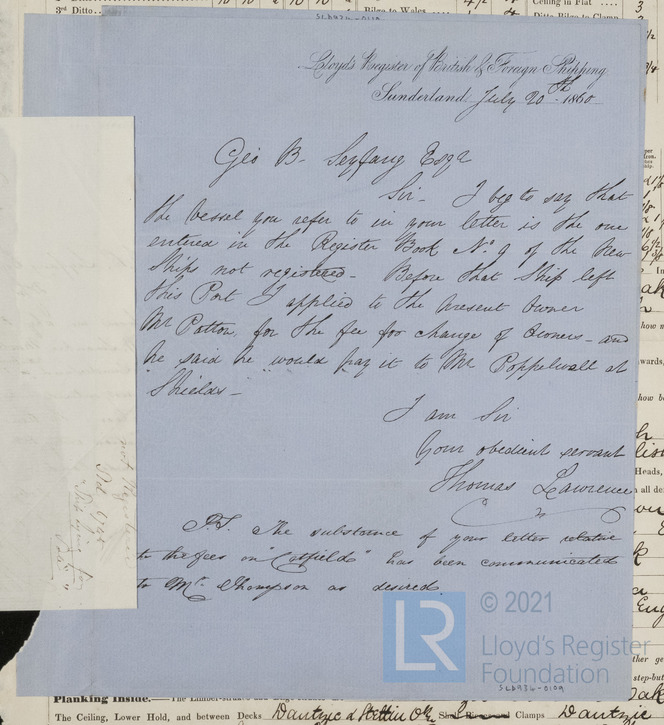 3rd Ditto
Bilge to Wales
Ceiling in Flat
3
SLD936-0129
Lloyd's Register of British & Foreign Shipping.
Sunderland July 20th 1860
Geo B. Seyfang Esqr
Sir - I beg to say that
the Vessel you refer to in your letter is the one
entered in the Register Book No. 9 of the New
Ships not registered - Before that Ship left
this Port I applied to the present Owner
Mr Patton, for the fee for change of Owners - and
he said he would pay it to Mr Poppelwell at
Shields -
I am Sir
Your obedient servant
Thomas Lawrence
P.S. The substance of your letter relative
to the fees on "Catfield" has been communicated
to Mr. Thompson as desired.
LR
© 2021
Lloyd's Register
Foundation
Planking Inside.
The Ceiling, Lower Hold, and between Decks Dantzic & Stettin Ok. Clamps Dantzic